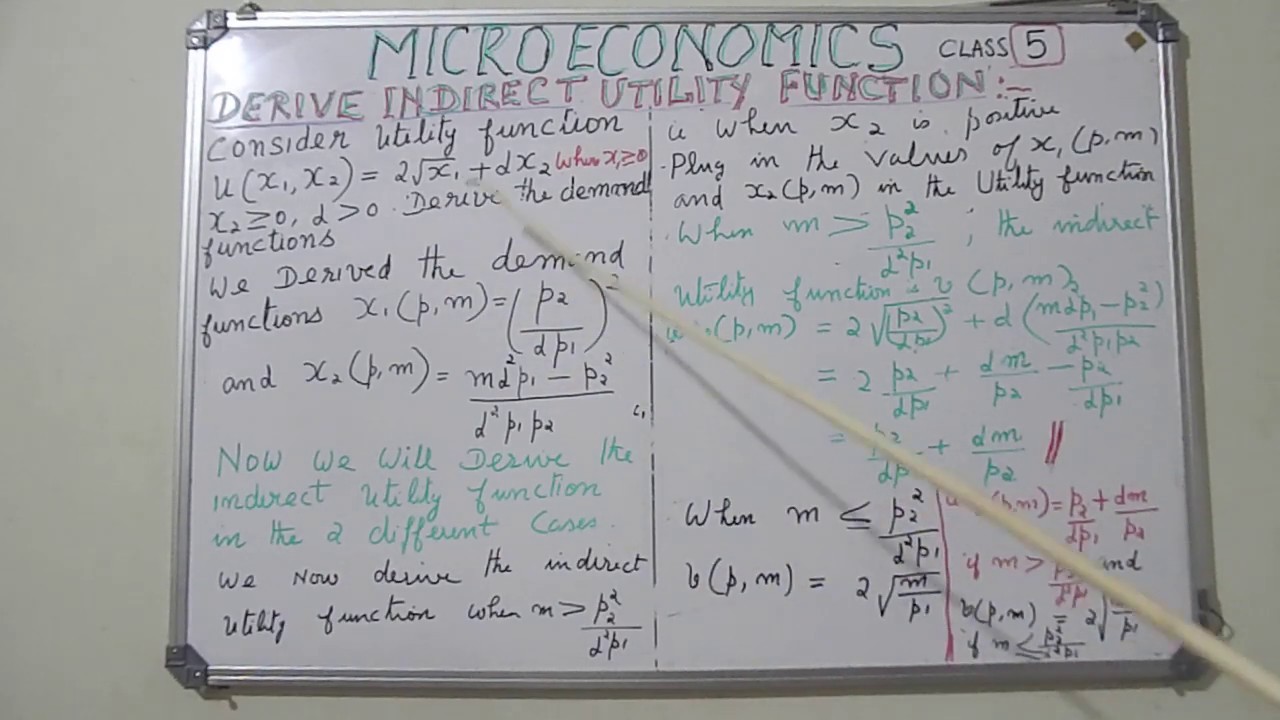 MICROECONOMICS CLASS 5
DERIVE INDIRECT UTILITY FUNCTION:-
Consider Utility function
u(x₁, x₂) = 2√x₁ + αx₂ when x₁≥0
x₂ ≥ 0, α > 0. Derive the demand
functions
We Derived the demand
functions x₁(p,m) = (p₂/αp₁)²
and x₂(p,m) = (mα²p₁ - p₂²)/(α²p₁p₂)
Now We Will Derive the
indirect utility function
in the 2 different Cases.
We Now derive the indirect
Utility function when m > p₂²/α²p₁
ie When x₂ is positive
Plug in the values of x₁(p,m)
and x₂(p,m) in the Utility function
When m > p₂²/α²p₁ ; the indirect
Utility function is v(p,m)
v(p,m) = 2√(p₂/αp₁)² + α(mαp₁ - p₂²)/(α²p₁p₂)
= 2 p₂/αp₁ + αm/p₂ - p₂/αp₁
= p₂/αp₁ + αm/p₂ //
When m ≤ p₂²/α²p₁
v(p,m) = 2√(m/p₁)
(p,m) = p₂/αp₁ + αm/p₂
if m > and
v(p,m) = 2√
if m ≤ p₂²/α²p₁